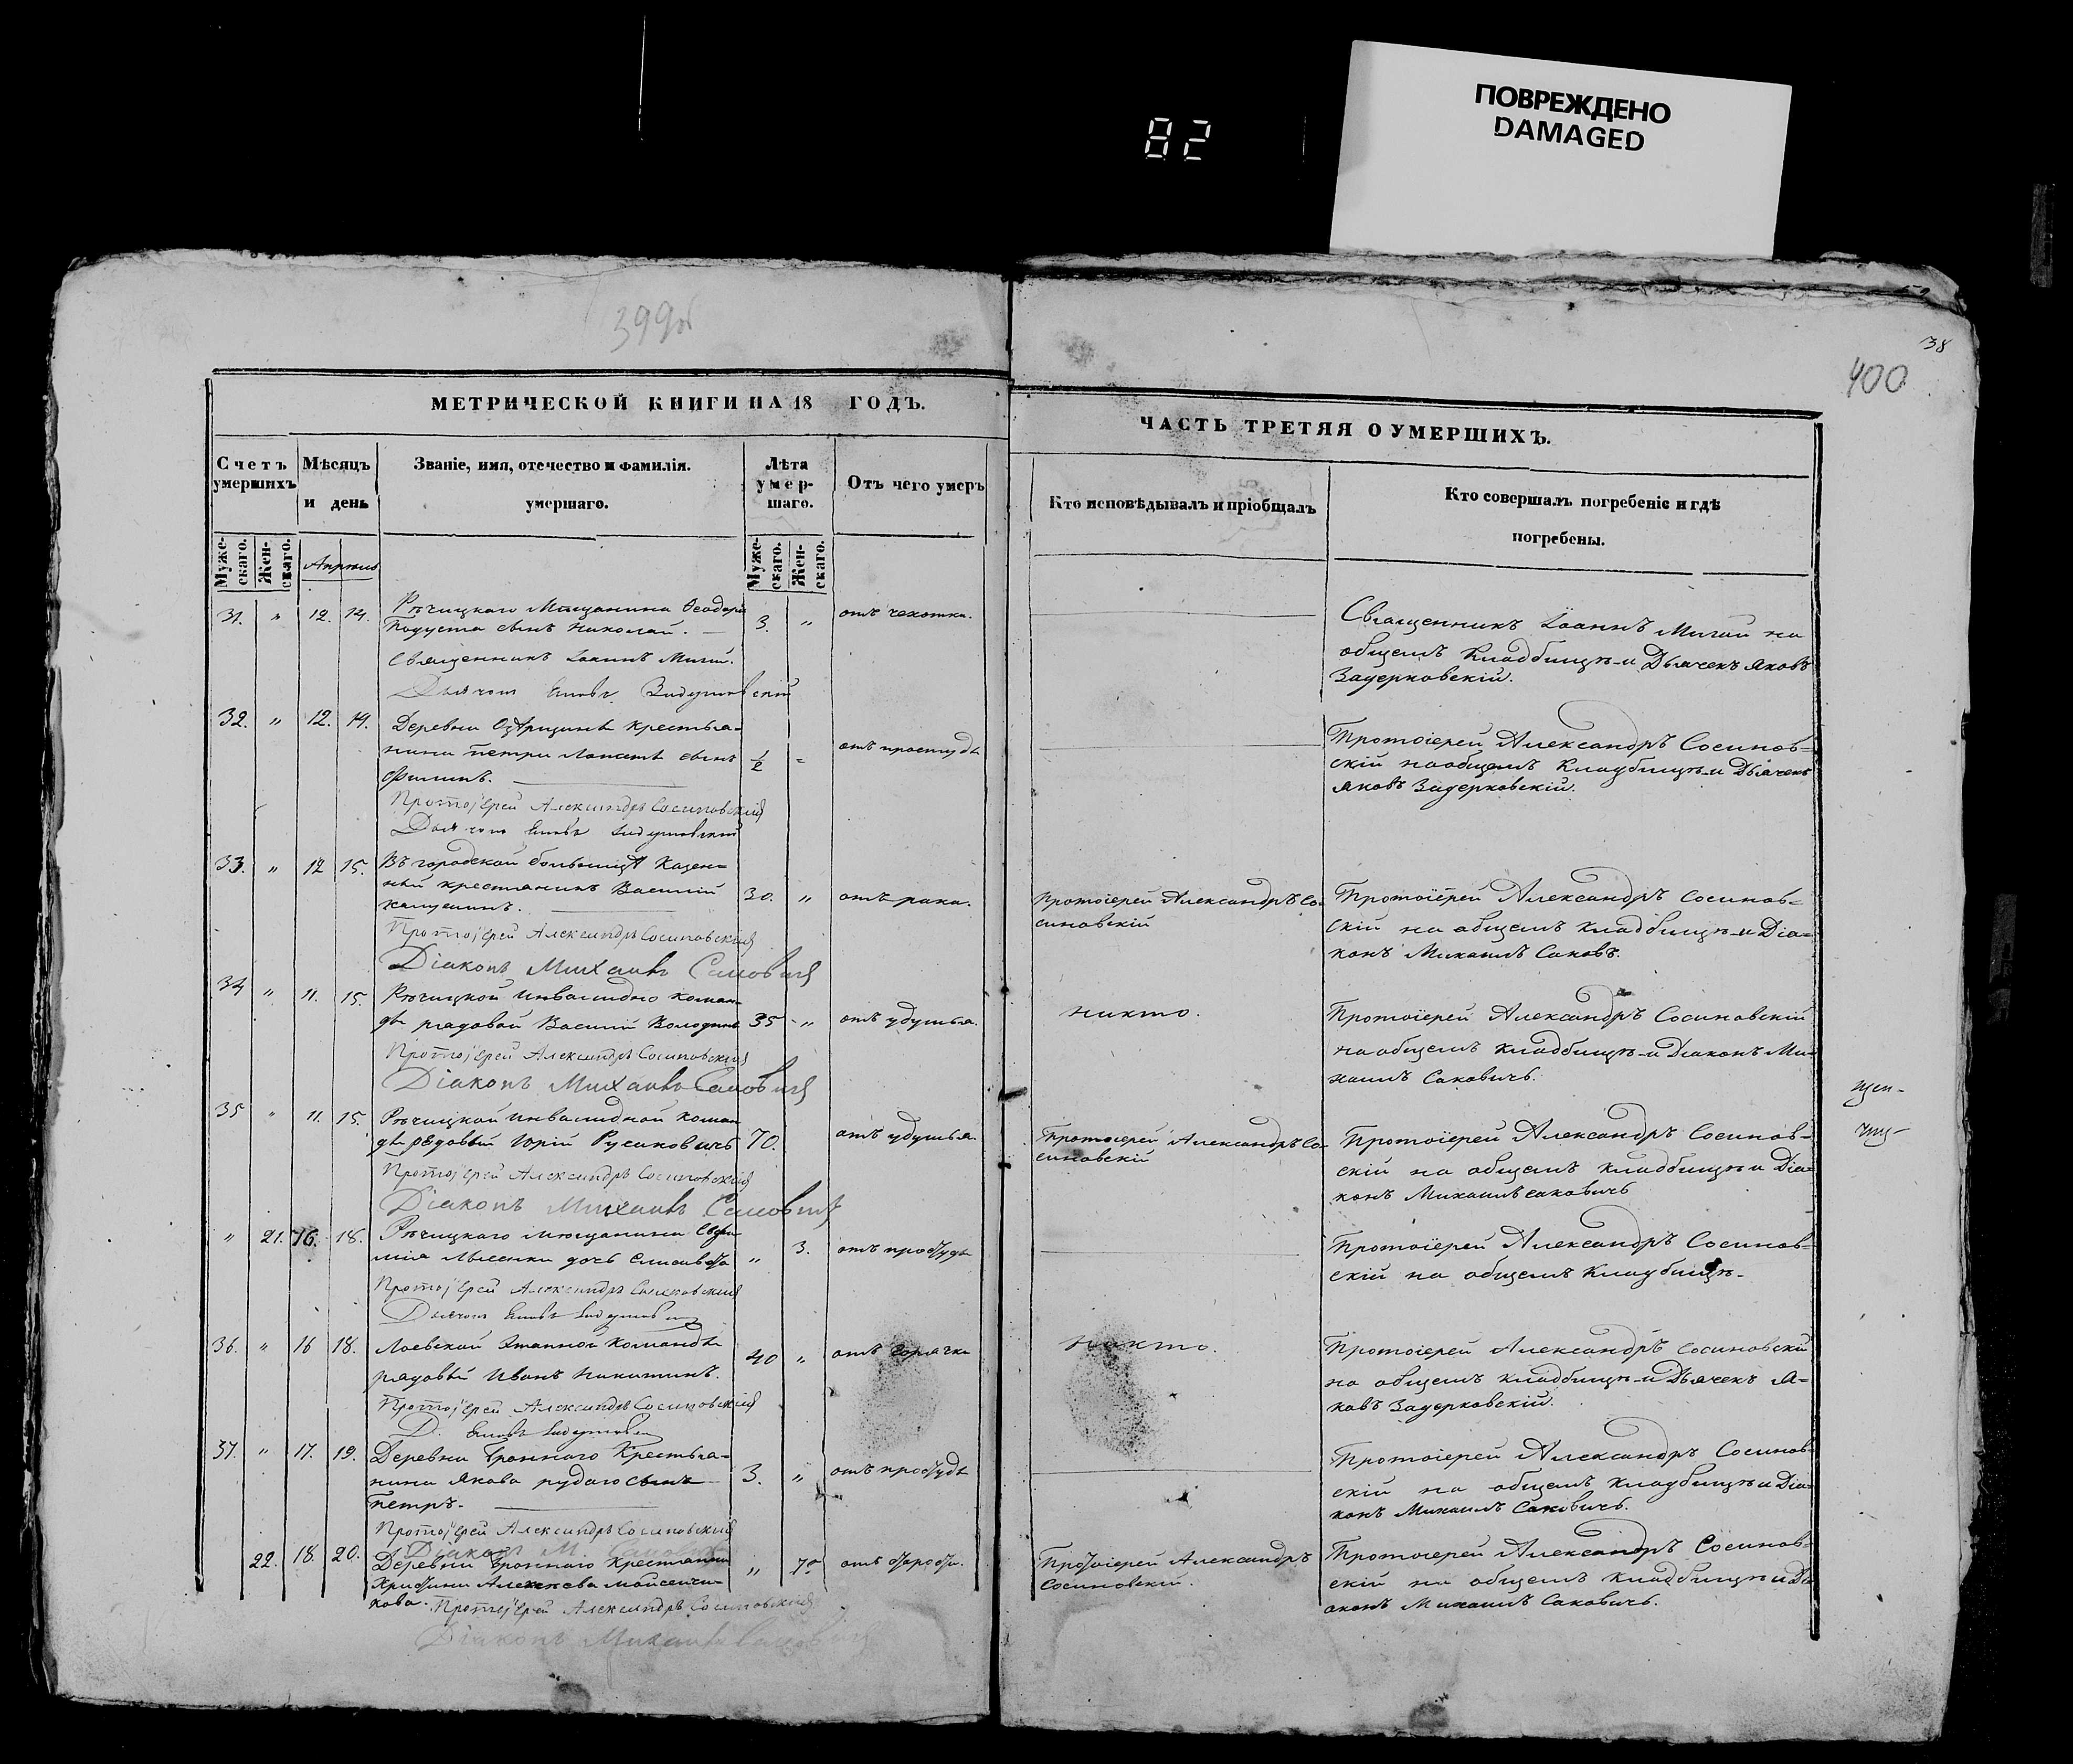 ПОВРЕЖДЕНО
DAMAGED
82
399об
38
400
МЕТРИЧЕСКОЙ КНИГИ НА 18 ГОДЪ.
Счетъ умершихъ
Мѣсяцъ и день
Званіе, имя, отечество и фамилія.
умершаго.
Лѣта умер-
шаго.
Отъ чего умеръ
Муже-
скаго.
Жен-
скаго.
Апрѣль
Муже-
скаго.
Жен-
скаго.
31. " 12. 14. Рѣчицкаго Мѣщанина Феодора 3. " отъ чехотки.
сынъ Николай.
Священникъ Іоаннъ
32. " 12. 14. Деревни Крестья-
нина Петра сынъ 1/2 " отъ простуды
Филипъ.
Протоіерей Александръ Сосиновскій
33. " 12 15. Въ городской больницѣ Казен-
ный крестьянинъ Василій 30. " отъ рака.
Протоіерей Александръ Сосиновскій
Діаконъ Михаилъ Саковичъ
34 " 11. 15. Рѣчицкой инвалидно коман-
ды рядовой Василій 35 " отъ удушья.
Протоіерей Александръ Сосиновскій
Діаконъ Михаилъ Саковичъ
35 " 11. 15. Рѣчицкой инвалидной коман
ды рядовый Юрій Русаковичъ 70. отъ удушья
Протоіерей Александръ Сосиновскій
Діаконъ Михаилъ Саковичъ
" 21. 16. 18. Рѣчицкаго мѣщанина
дочь Елисавета " 3. отъ простуды
Протоіерей Александръ Сосиновскій
36. " 16 18. Лоевской Этапной Команды
рядовый Иванъ Никитинъ. 40 " отъ горячки
Протоіерей Александръ Сосиновскій
37. " 17. 19. Деревни Броннаго Крестья-
нина Якова рудаго сынъ 3. " отъ простуды
Петръ.
Протоіерей Александръ Сосиновскій
Діаконъ М. Саковичъ
22. 18. 20. Деревни Броннаго Крестьянка
Христина Алексѣева " 70 отъ старости.
кова. Протоіерей Александръ Сосиновскій
Діаконъ Михаилъ Саковичъ
ЧАСТЬ ТРЕТЯЯ О УМЕРШИХЪ.
Кто исповѣдывалъ и пріобщалъ
Кто совершалъ погребеніе и гдѣ
погребены.
Священникъ Іоаннъ на
общемъ Кладбищѣ и Дьячекъ Яковъ
Задерковскій.
Протоіерей Александръ Сосинов-
скій на общемъ Кладбищѣ и Дьячекъ
Яковъ Задерковскій.
Протоіерей Александръ Со-
синовскій
Протоіерей Александръ Сосинов-
скій на общемъ кладбищѣ и Діа-
конъ Михаилъ Саковъ.
никто.
Протоіерей Александръ Сосиновскій
на общемъ кладбищѣ и Діаконъ Ми-
хаилъ Саковичъ.
Протоіерей Александръ Со-
синовскій
Протоіерей Александръ Сосинов-
скій на общемъ кладбищѣ и Діа-
конъ Михаилъ Саковичъ
Протоіерей Александръ Сосинов-
скій на общемъ Кладбищѣ.
никто.
Протоіерей Александръ Сосиновскій
на общемъ кладбищѣ и Дьячекъ Я-
ковъ Задерковскій.
Протоіерей Александръ Сосинов-
скій на общемъ кладбищѣ и Діа-
конъ Михаилъ Саковичъ.
Протоіерей Александръ
Сосиновскій.
Протоіерей Александръ Сосинов-
скій на общемъ кладбищѣ и Ді-
аконъ Михаилъ Саковичъ.